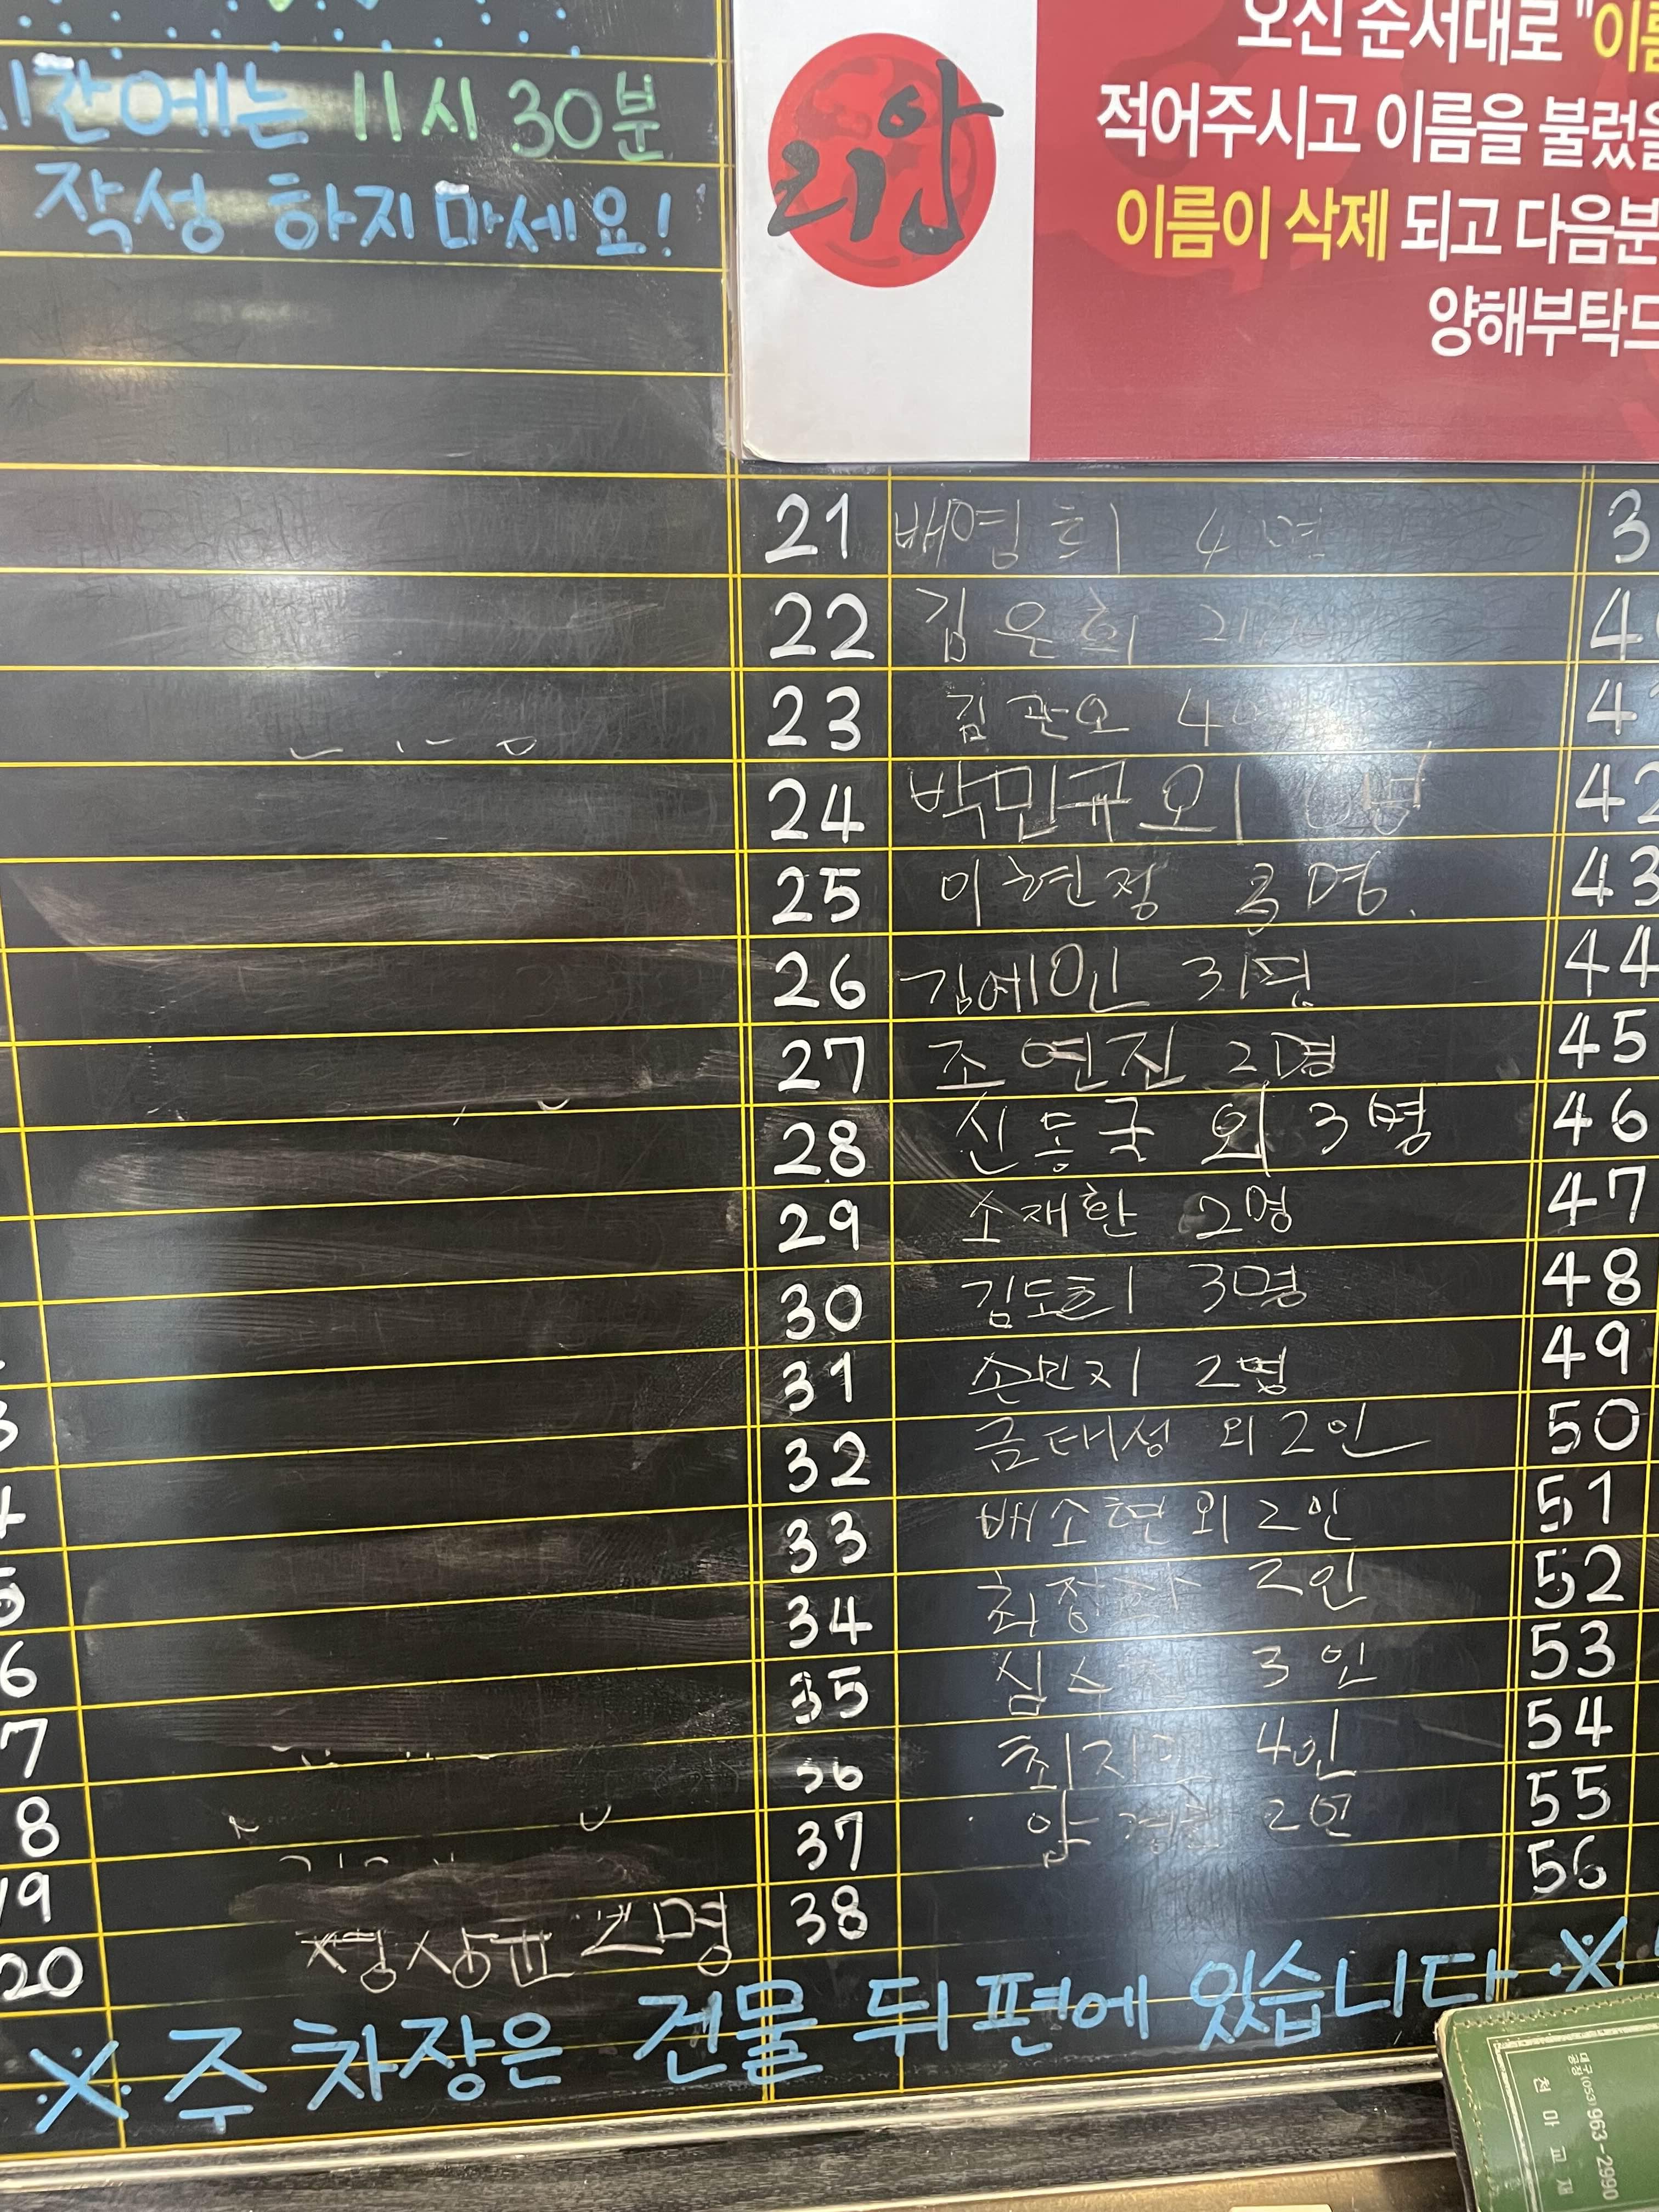 시간에는 11시 30분
작성 하지 마세요!
리안
오신 순서대로 "이름
적어주시고 이름을 불렀을
이름이 삭제 되고 다음분
양해부탁드
21 배영희 4명
22 김은희
23 김관오 4
24 박민규 외
25 이현정 명.
26 김예인 3명
27 조연진 2명
28 신동국 외 3명
29 소재환 2명
30 김도희 3명
31 손민지 2명
32 금태성 외 2인
33 배소현 외 2인
34 최정 2인
35 심수 3인
36 최지 4인
37 2인
38
3
4
4
42
43
44
45
46
47
48
49
50
51
52
53
54
55
56
3
4
5
6
7
8
19
20 정상교 2명
※ 주차장은 건물 뒤편에 있습니다 ※
대구(053)963-2990
천마교재